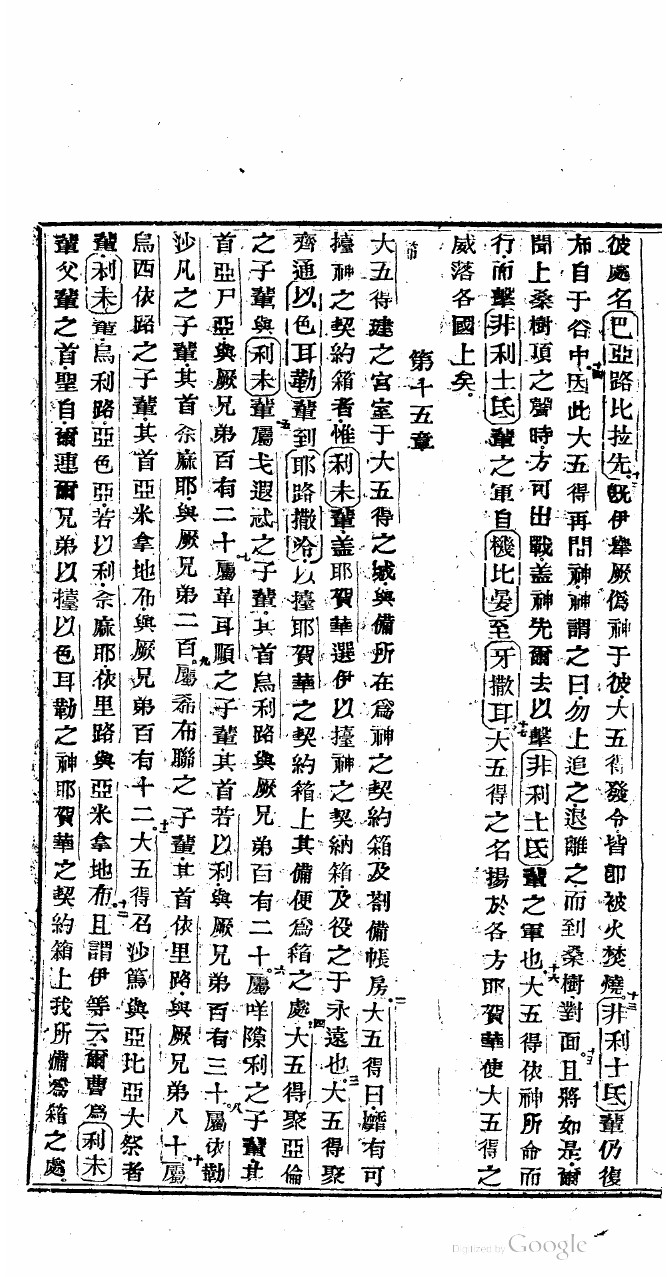 彼處名巴亞路比拉先十二既伊舉厥僞神于彼大五得發令皆卽被火焚燒十三非利士氐輩仍復
布自于谷中十四因此大五得再問神神謂之曰勿上追之退離之而到桑樹對面十五且將如是爾
聞上桑樹頂之聲時方可出戰盖神先爾去以擊非利士氐輩之軍也十六大五得依神所命而
行而擊非利士氐輩之軍自機比晏至牙撒耳十七大五得之名揚於各方耶賀華使大五得之
威落各國上矣
第十五章
節
大五得建之宮室于大五得之城與備所在爲神之契約箱及劄備帳房二大五得曰無有可
擡神之契約箱者惟利未輩盖耶賀華選伊以擡神之契約箱及役之于永遠也三大五得聚
齊通以色耳勒輩到耶路撒冷以擡耶賀華之契約箱上其備便爲箱之處四大五得聚亞倫
之子輩與利未輩五屬戈遐忒之子輩其首烏利路與厥兄弟百有二十六屬咩隙利之子輩其
首亞尸亞與厥兄弟百有二十七屬革耳順之子輩其首若以利與厥兄弟百有三十八屬依勒
沙凡之子輩其首佘麻耶與厥兄弟二百九屬希布聯之子輩其首依里路與厥兄弟八十十屬
烏西依路之子輩其首亞米拿地布與厥兄弟百有十二十一大五得召沙篤與亞比亞大祭者
輩利未輩烏利路亞色亞若以利佘麻耶依里路與亞米拿地布十二且謂伊等云爾曹爲利未
輩父輩之首聖自爾連爾兄弟以擡以色耳勒之神耶賀華之契約箱上我所備爲箱之處
Digitized by Google